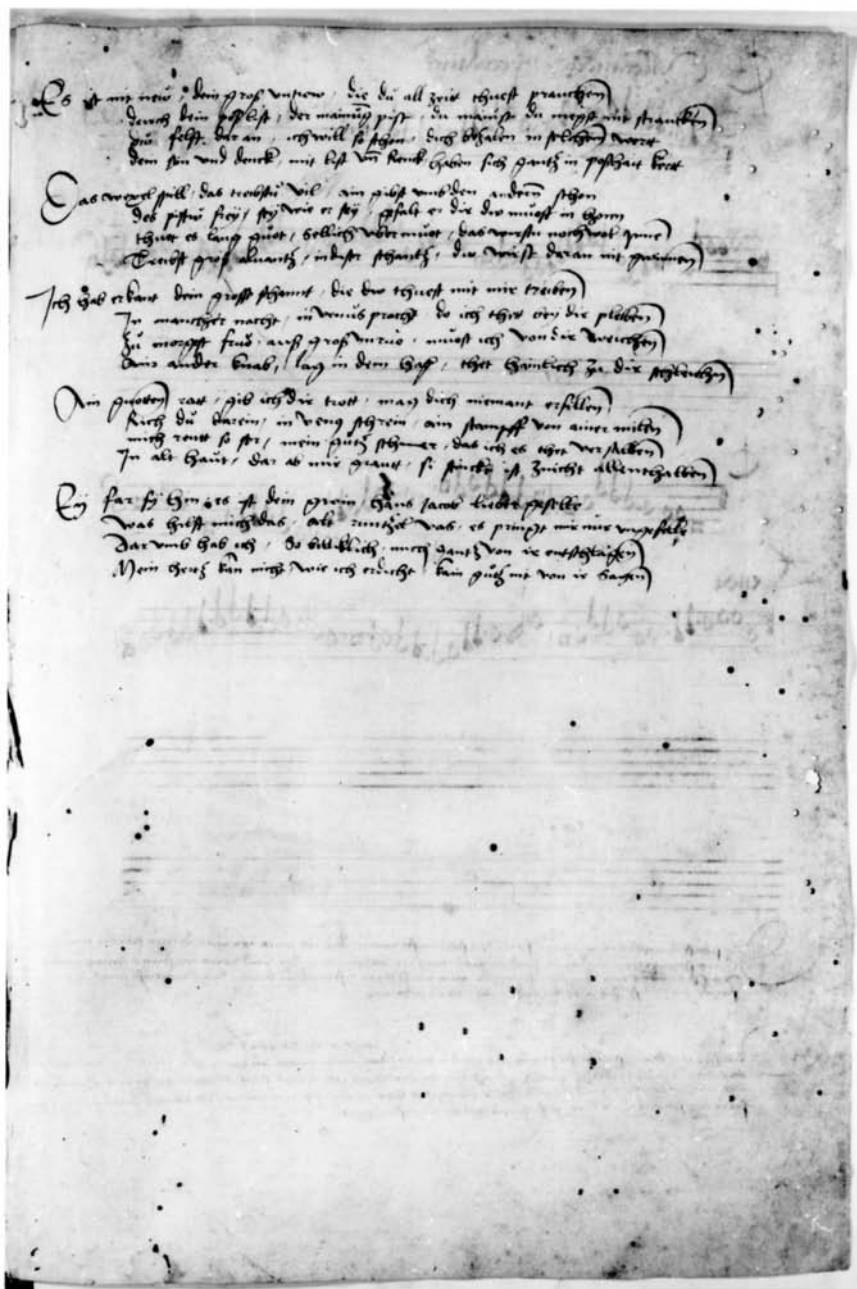 Es ist nit new, dein gros untrew, die du all zeit thuest prauchen
durch dein list, der mainung pist, du mainst du megst mit straucken
du felst dar an, ich will so schon, dich bezalen in solchem wert
dein sin und denck, mit list und renck haben sich gantz in poshait kert
Das wexel spill, das treibstu vil, ain gibst umb den andern schon
des pistu frey, sey wie er sey, gfalt er dir dw muost in honn
thuet es lang guet, sollich ubermuet, das wurstu noch wol Inne
Treibst gros alvantz, in diser schantz, dw wirst daran nit gwinnen
Ich hab erkant dein grosse schannt, die dw thuest mit mir treiben
In mancher nacht, in venus pracht do ich thet bey dir pleiben
Zu morgest frue, aus gros unrue, muest ich von dir weichen
Ain ander knab, lag in dem haff, thet haimlich zu dir schleichen
Ain gueten ratt, gib ich dir trott, mag dich niemant erfillen
Reich du darein, in veneus schrein, ain stampff von ainer millen
mich reut so ser, mein guetz schmer, das ich es thet versalben
In alt haut, dar ab mir graut, si stincket ist znicht allenthalben
Ey far sy hin, es ist dein gwin, hans Jacob liebster geselle
was hilfft mich das, alt runtzlet vas, es pringt mir nur ungefelle
Dar umb hab ich, so billiklich, mich gantz von ir entschlagen
Mein hertz kan nicht, wie ich erdicht, kain guetz nit von ir sagen